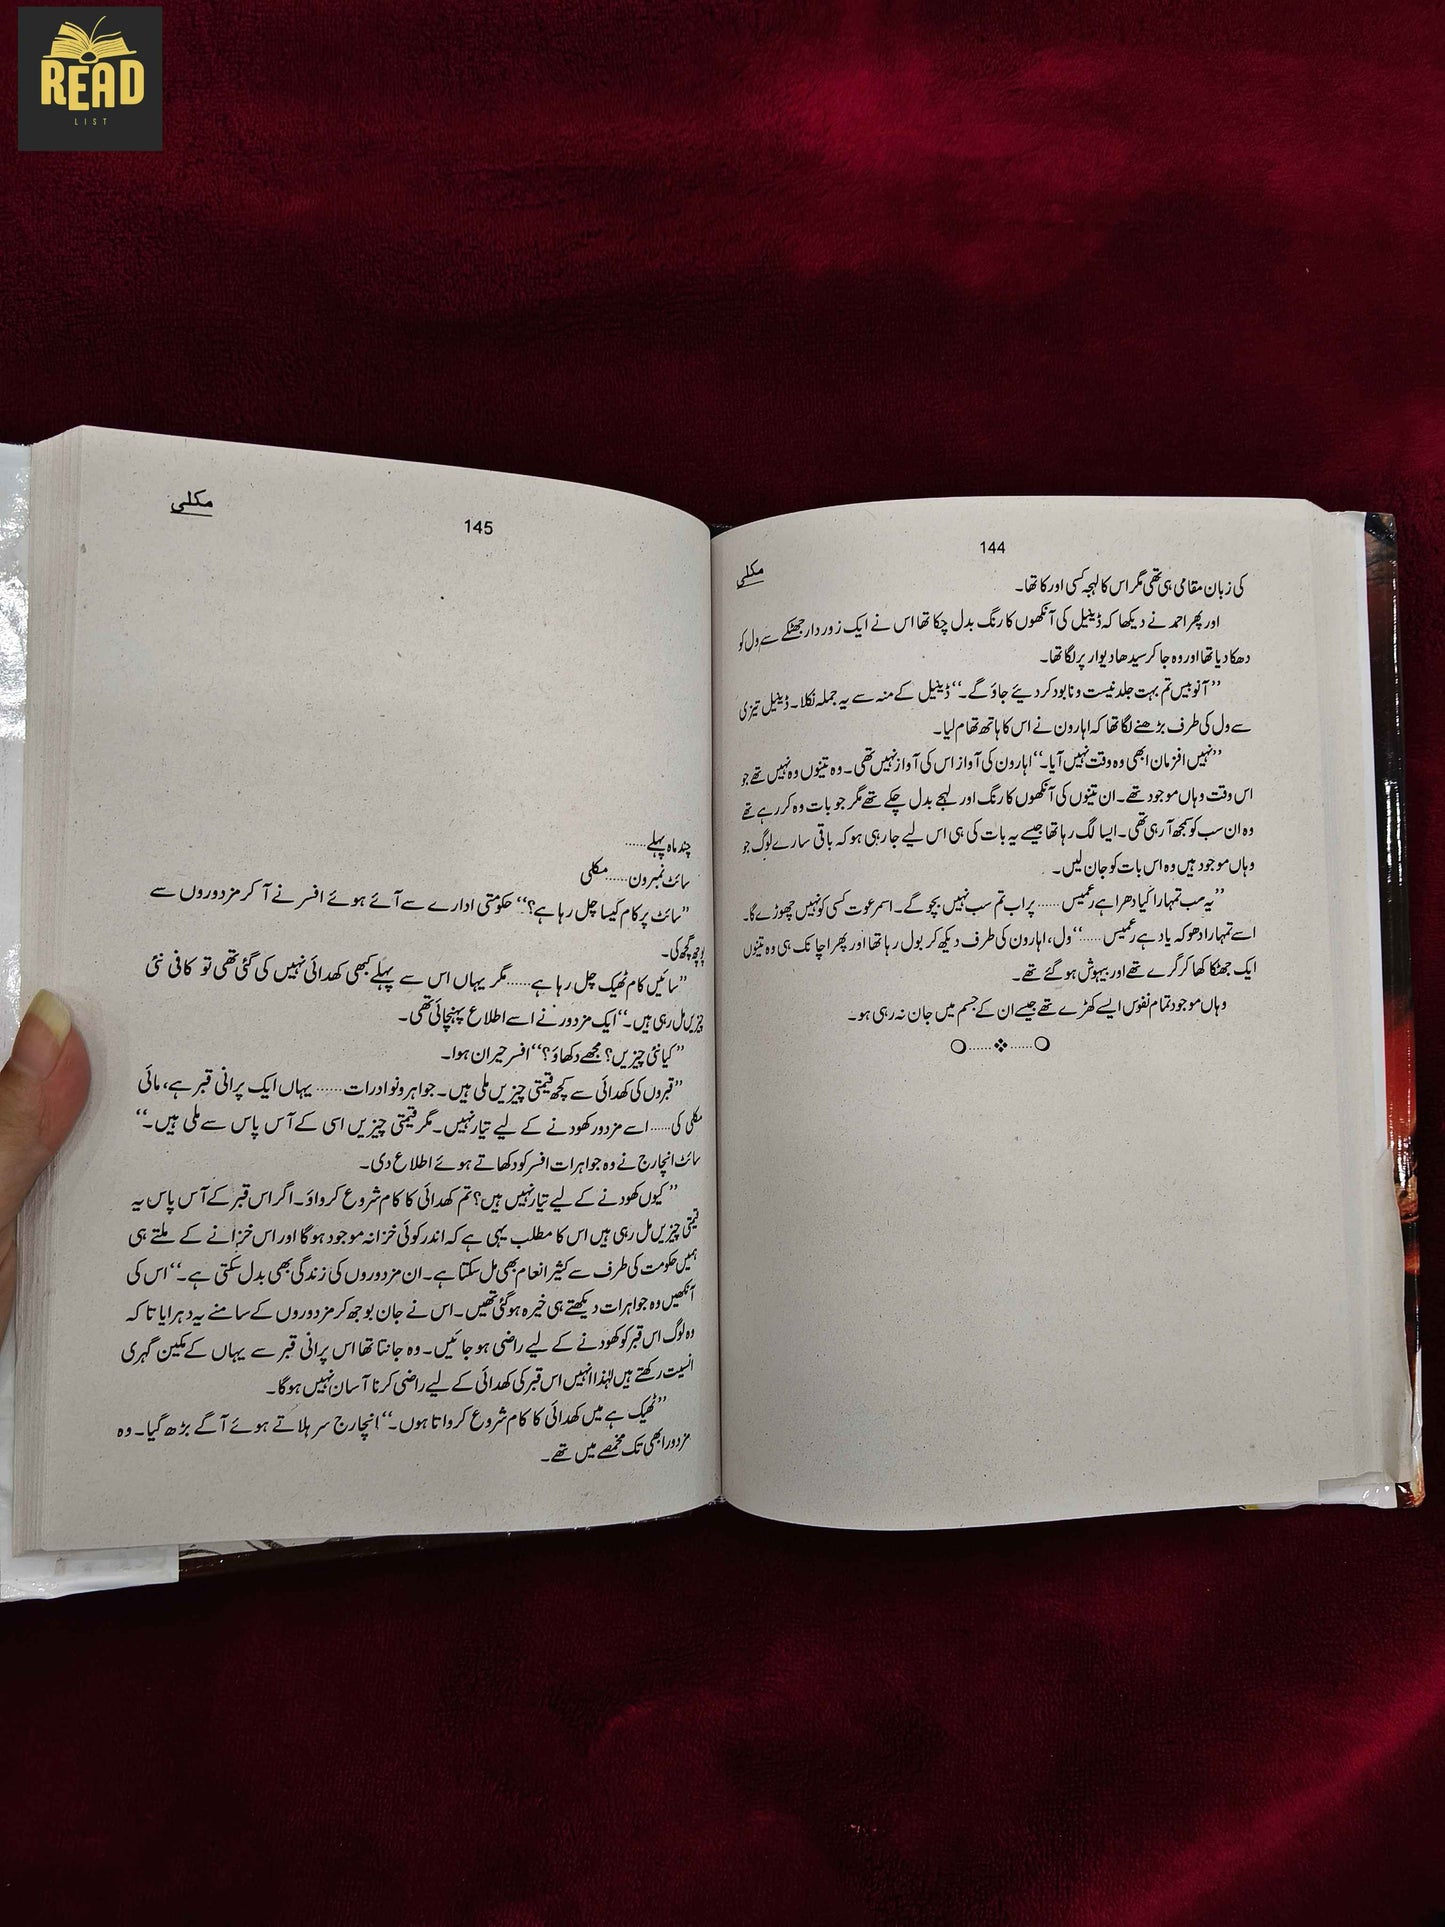 READ
LIST
144
مکلی
کی زبان مقامی ہی تھی مگر اس کا لہجہ کسی اور کا تھا۔
اور پھر احمد نے دیکھا کہ ڈینیل کی آنکھوں کا رنگ بدل چکا تھا اس نے ایک زور دار جھٹکے سے ول کو
دھکا دیا تھا اور وہ جا کر سیدھا دیوار پر لگا تھا۔
’’آنوبیس تم بہت جلد نیست و نابود کر دیئے جاؤ گے۔‘‘ ڈینیل کے منہ سے یہ جملہ نکلا۔ ڈینیل تیزی
سے ول کی طرف بڑھنے لگا تھا کہ اہارون نے اس کا ہاتھ تھام لیا۔
’’نہیں افزمان ابھی وہ وقت نہیں آیا۔‘‘ اہارون کی آواز اس کی آواز نہیں تھی۔ وہ تینوں وہ نہیں تھے جو
اس وقت وہاں موجود تھے۔ ان تینوں کی آنکھوں کا رنگ اور لہجے بدل چکے تھے مگر جو بات وہ کر رہے تھے
وہ ان سب کو سمجھ آ رہی تھی۔ ایسا لگ رہا تھا جیسے یہ بات کی ہی اس لیے جا رہی ہو کہ باقی سارے لوگ جو
وہاں موجود ہیں وہ اس بات کو جان لیں۔
’’یہ سب تمہارا کیا دھرا ہے رعمیس...... پر اب تم سب نہیں بچو گے۔ اسمر عوت کسی کو نہیں چھوڑے گا۔
اسے تمہارا دھوکہ یاد ہے رعمیس.....‘‘ ول، اہارون کی طرف دیکھ کر بول رہا تھا اور پھر اچانک ہی وہ تینوں
ایک جھٹکا کھا کر گرے تھے اور بیہوش ہو گئے تھے۔
وہاں موجود تمام نفوس ایسے کھڑے تھے جیسے ان کے جسم میں جان نہ رہی ہو۔
145
مکلی
چند ماہ پہلے......
سائٹ نمبر ون......مکلی
’’سائٹ پر کام کیسا چل رہا ہے؟‘‘ حکومتی ادارے سے آئے ہوئے افسر نے آ کر مزدوروں سے
پوچھ گچھ کی۔
’’سائیں کام ٹھیک چل رہا ہے......مگر یہاں اس سے پہلے کبھی کھدائی نہیں کی گئی تھی تو کافی نئی
چیزیں مل رہی ہیں۔‘‘ ایک مزدور نے اسے اطلاع پہنچائی تھی۔
’’کیا نئی چیزیں؟ مجھے دکھاؤ؟‘‘ افسر حیران ہوا۔
’’قبروں کی کھدائی سے کچھ قیمتی چیزیں ملی ہیں۔ جواہر و نوادرات...... یہاں ایک پرانی قبر ہے، مائی
مکلی کی.....اسے مزدور کھودنے کے لیے تیار نہیں۔ مگر قیمتی چیزیں اسی کے آس پاس سے ملی ہیں۔‘‘
سائٹ انچارج نے وہ جواہرات افسر کو دکھاتے ہوئے اطلاع دی۔
’’کیوں کھودنے کے لیے تیار نہیں ہیں؟ تم کھدائی کا کام شروع کرواؤ۔ اگر اس قبر کے آس پاس یہ
قیمتی چیزیں مل رہی ہیں اس کا مطلب یہی ہے کہ اندر کوئی خزانہ موجود ہوگا اور اس خزانے کے ملتے ہی
ہمیں حکومت کی طرف سے کثیر انعام بھی مل سکتا ہے۔ ان مزدوروں کی زندگی بھی بدل سکتی ہے۔‘‘ اس کی
آنکھیں وہ جواہرات دیکھتے ہی خیرہ ہو گئی تھیں۔ اس نے جان بوجھ کر مزدوروں کے سامنے یہ دہرایا تا کہ
وہ لوگ اس قبر کو کھودنے کے لیے راضی ہو جائیں۔ وہ جانتا تھا اس پرانی قبر سے یہاں کے مکین گہری
انسیت رکھتے ہیں لہٰذا انہیں اس قبر کی کھدائی کے لیے راضی کرنا آسان نہیں ہوگا۔
’’ٹھیک ہے میں کھدائی کا کام شروع کرواتا ہوں۔‘‘ انچارج سر ہلاتے ہوئے آگے بڑھ گیا۔ وہ
مزدور ابھی تک مخمصے میں تھے۔